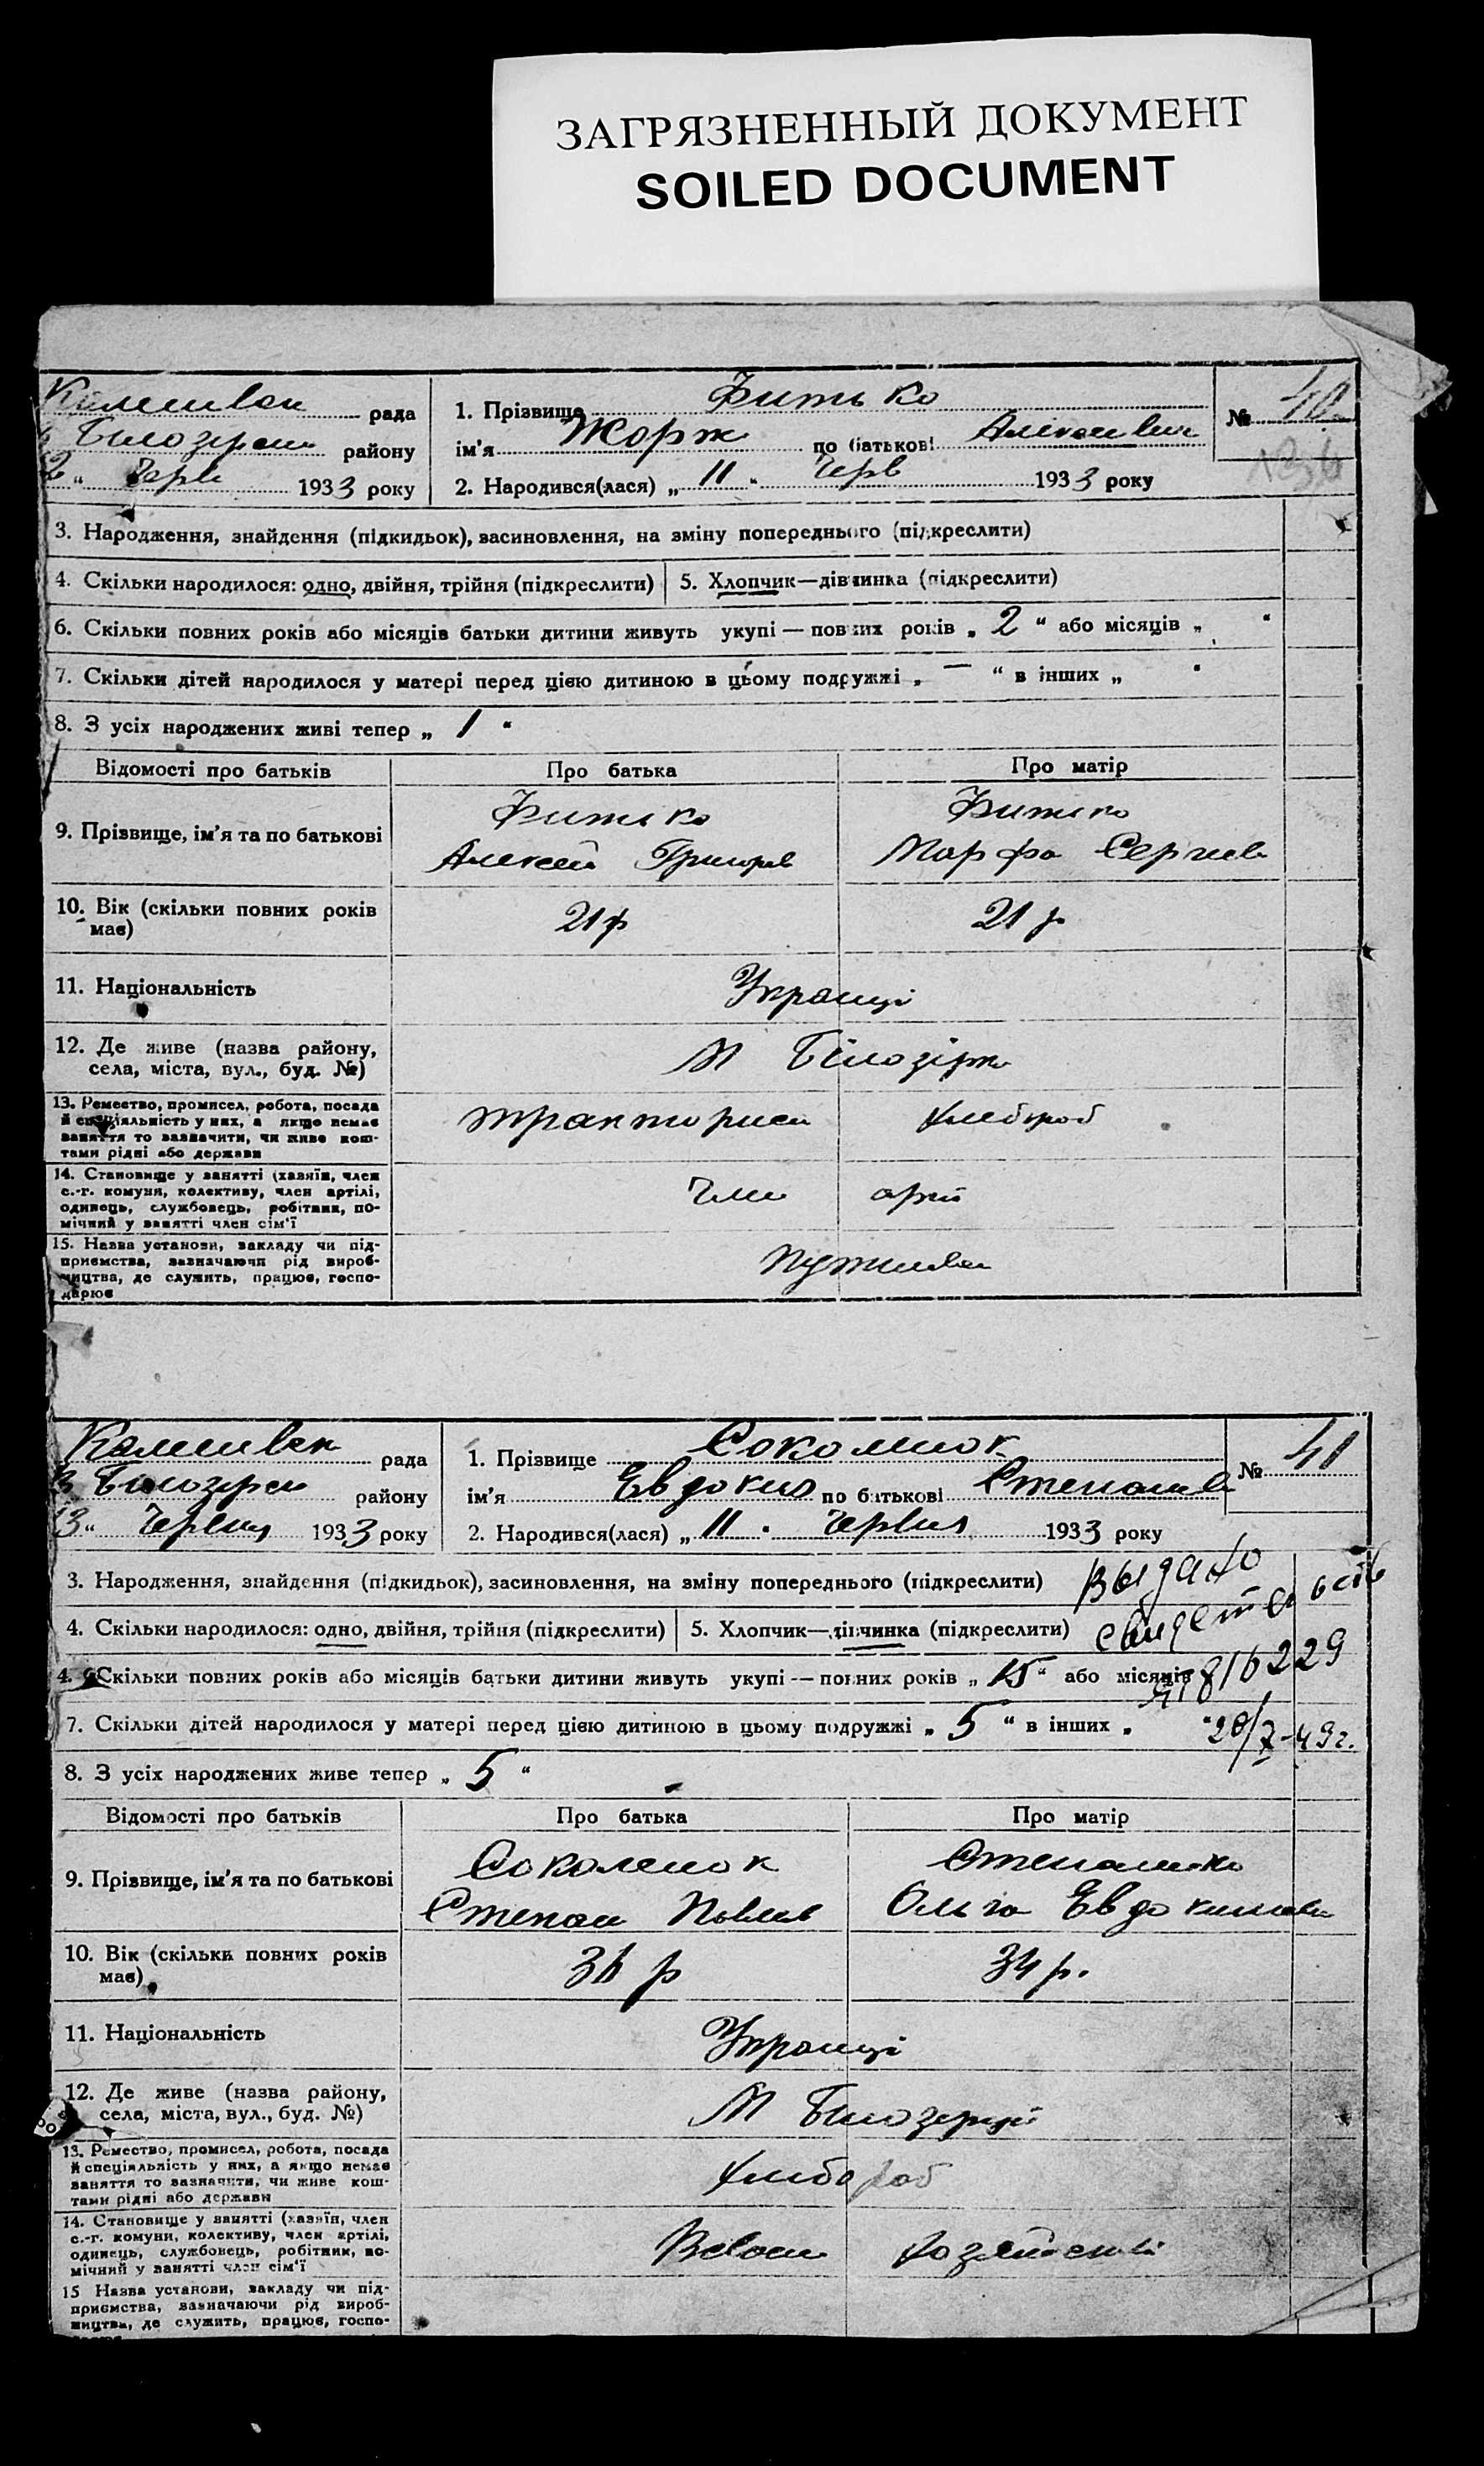 ЗАГРЯЗНЕННЫЙ ДОКУМЕНТ
SOILED DOCUMENT
рада
району
193 3 року
1. Прізвище Фитько
ім'я Жорж по батькові
2. Народився(лася) „ 11 “ Черв 193 3 року
№ 40
3. Народження, знайдення (підкидьок), засиновлення, на зміну попереднього (підкреслити)
4. Скільки народилося: одно, двійня, трійня (підкреслити) 5. Хлопчик—дівчинка (підкреслити)
6. Скільки повних років або місяців батьки дитини живуть укупі — повних років „ 2 “ або місяців „ “
7. Скільки дітей народилося у матері перед цією дитиною в цьому подружжі „ — “ в інших „ “
8. З усіх народжених живі тепер „ 1 “
Відомості про батьків Про батька Про матір
9. Прізвище, ім'я та по батькові
Фитько Фитько
Алексей Григорв Марфа Сергиев
10. Вік (скільки повних років
має)
21 р 21 р
11. Національність
Украиці
12. Де живе (назва району,
села, міста, вул., буд. №)
М Білозірк
13. Ремество, промисел, робота, посада
й спеціяльність у них, а якщо немає
заняття то зазначити, чи живе кош-
тами рідні або держави
тракторист хлебороб
14. Становище у занятті (хазяїн, член
с.-г. комуни, колективу, член артілі,
одинець, службовець, робітник, по-
мічний у занятті член сім'ї
Член арт
15. Назва установи, закладу чи під-
приємства, зазначаючи рід вироб-
ництва, де служить, працює, госпо-
дарює
рада
району
13 “ Червня 193 3 року
1. Прізвище Соколюк
ім'я Евдокия по батькові Степанов
2. Народився(лася) „ 11 “ Червня 193 3 року
№ 41
3. Народження, знайдення (підкидьок), засиновлення, на зміну попереднього (підкреслити)
Выдано
4. Скільки народилося: одно, двійня, трійня (підкреслити) 5. Хлопчик—дівчинка (підкреслити)
свидетельств
4. 6 Скільки повних років або місяців батьки дитини живуть укупі — повних років „ 15 “ або місяців
816229
7. Скільки дітей народилося у матері перед цією дитиною в цьому подружжі „ 5 “ в інших „ “
20/7-49г.
8. З усіх народжених живе тепер „ 5 “
Відомості про батьків Про батька Про матір
9. Прізвище, ім'я та по батькові
Соколюк
Степан Павлов Ольга Евдокимов
10. Вік (скільки повних років
має)
р 34 р.
11. Національність
Украиці
12. Де живе (назва району,
села, міста, вул., буд. №)
М
13. Ремество, промисел, робота, посада
й спеціяльність у них, а якщо немає
заняття то зазначити, чи живе кош-
тами рідні або держави
хлибороб
14. Становище у занятті (хазяїн, член
с.-г. комуни, колективу, член артілі,
одинець, службовець, робітник, по-
мічний у занятті член сім'ї
15 Назва установи, закладу чи під-
приємства, зазначаючи рід вироб-
ництва, де служить, працює, госпо-